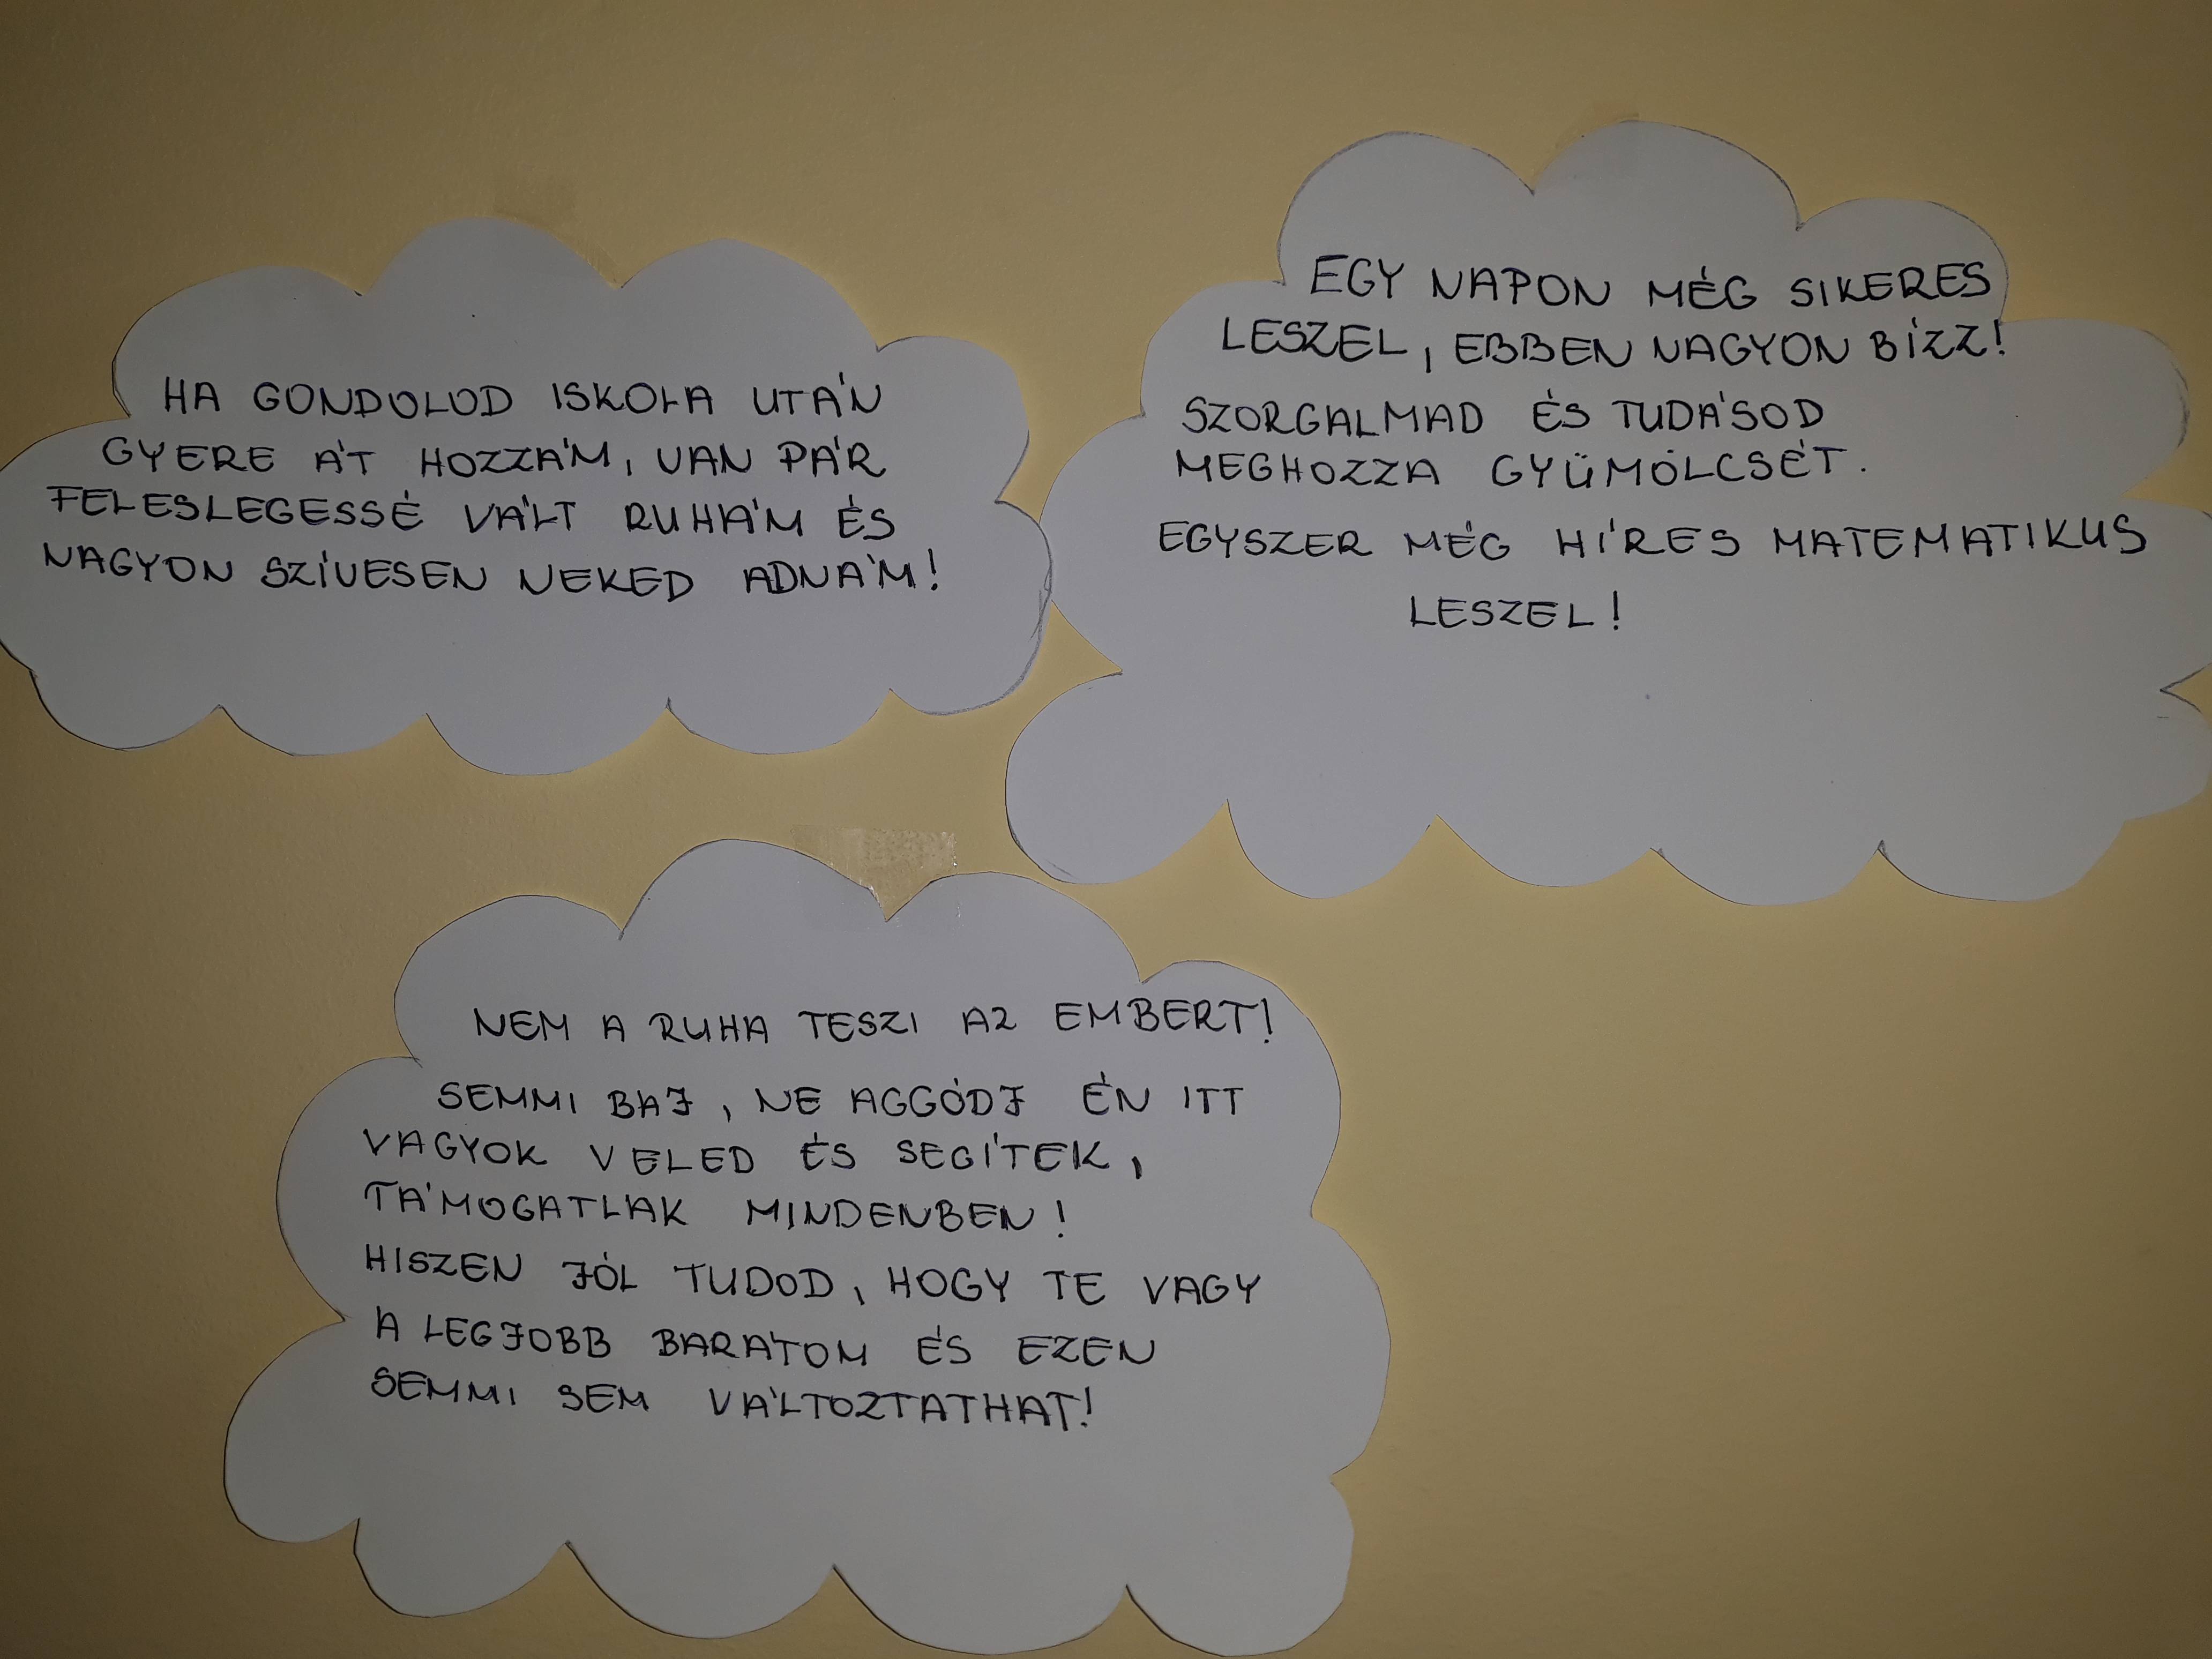 HA GONDOLOD ISKOLA UTÁN
GYERE ÁT HOZZÁM, VAN PÁR
FELESLEGESSÉ VÁLT RUHÁM ÉS
NAGYON SZÍVESEN NEKED ADNÁM!
EGY NAPON MÉG SIKERES
LESZEL, EBBEN NAGYON BÍZZ!
SZORGALMAD ÉS TUDÁSOD
MEGHOZZA GYÜMÖLCSÉT.
EGYSZER MÉG HÍRES MATEMATIKUS
LESZEL!
NEM A RUHA TESZI AZ EMBERT!
SEMMI BAJ, NE AGGÓDJ ÉN ITT
VAGYOK VELED ÉS SEGÍTEK,
TÁMOGATLAK MINDENBEN!
HISZEN JÓL TUDOD, HOGY TE VAGY
A LEGJOBB BARÁTOM ÉS EZEN
SEMMI SEM VÁLTOZTATHAT!